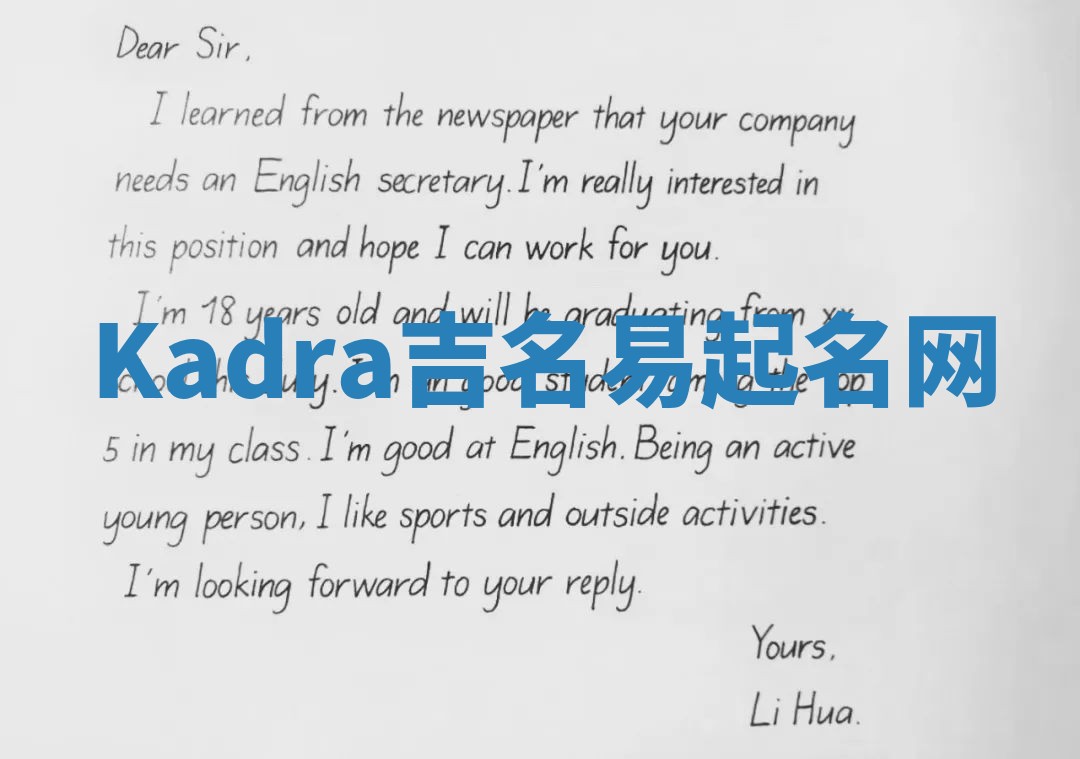 Dear Sir,
I learned from the newspaper that your company
needs an English secretary. I'm really interested in
this position and hope I can work for you.
I'm 18 years old and will be graduating from xx
Kadra吉名易起名网
good student among the top
5 in my class. I'm good at English. Being an active
young person, I like sports and outside activities.
I'm looking forward to your reply.
Yours,
Li Hua.